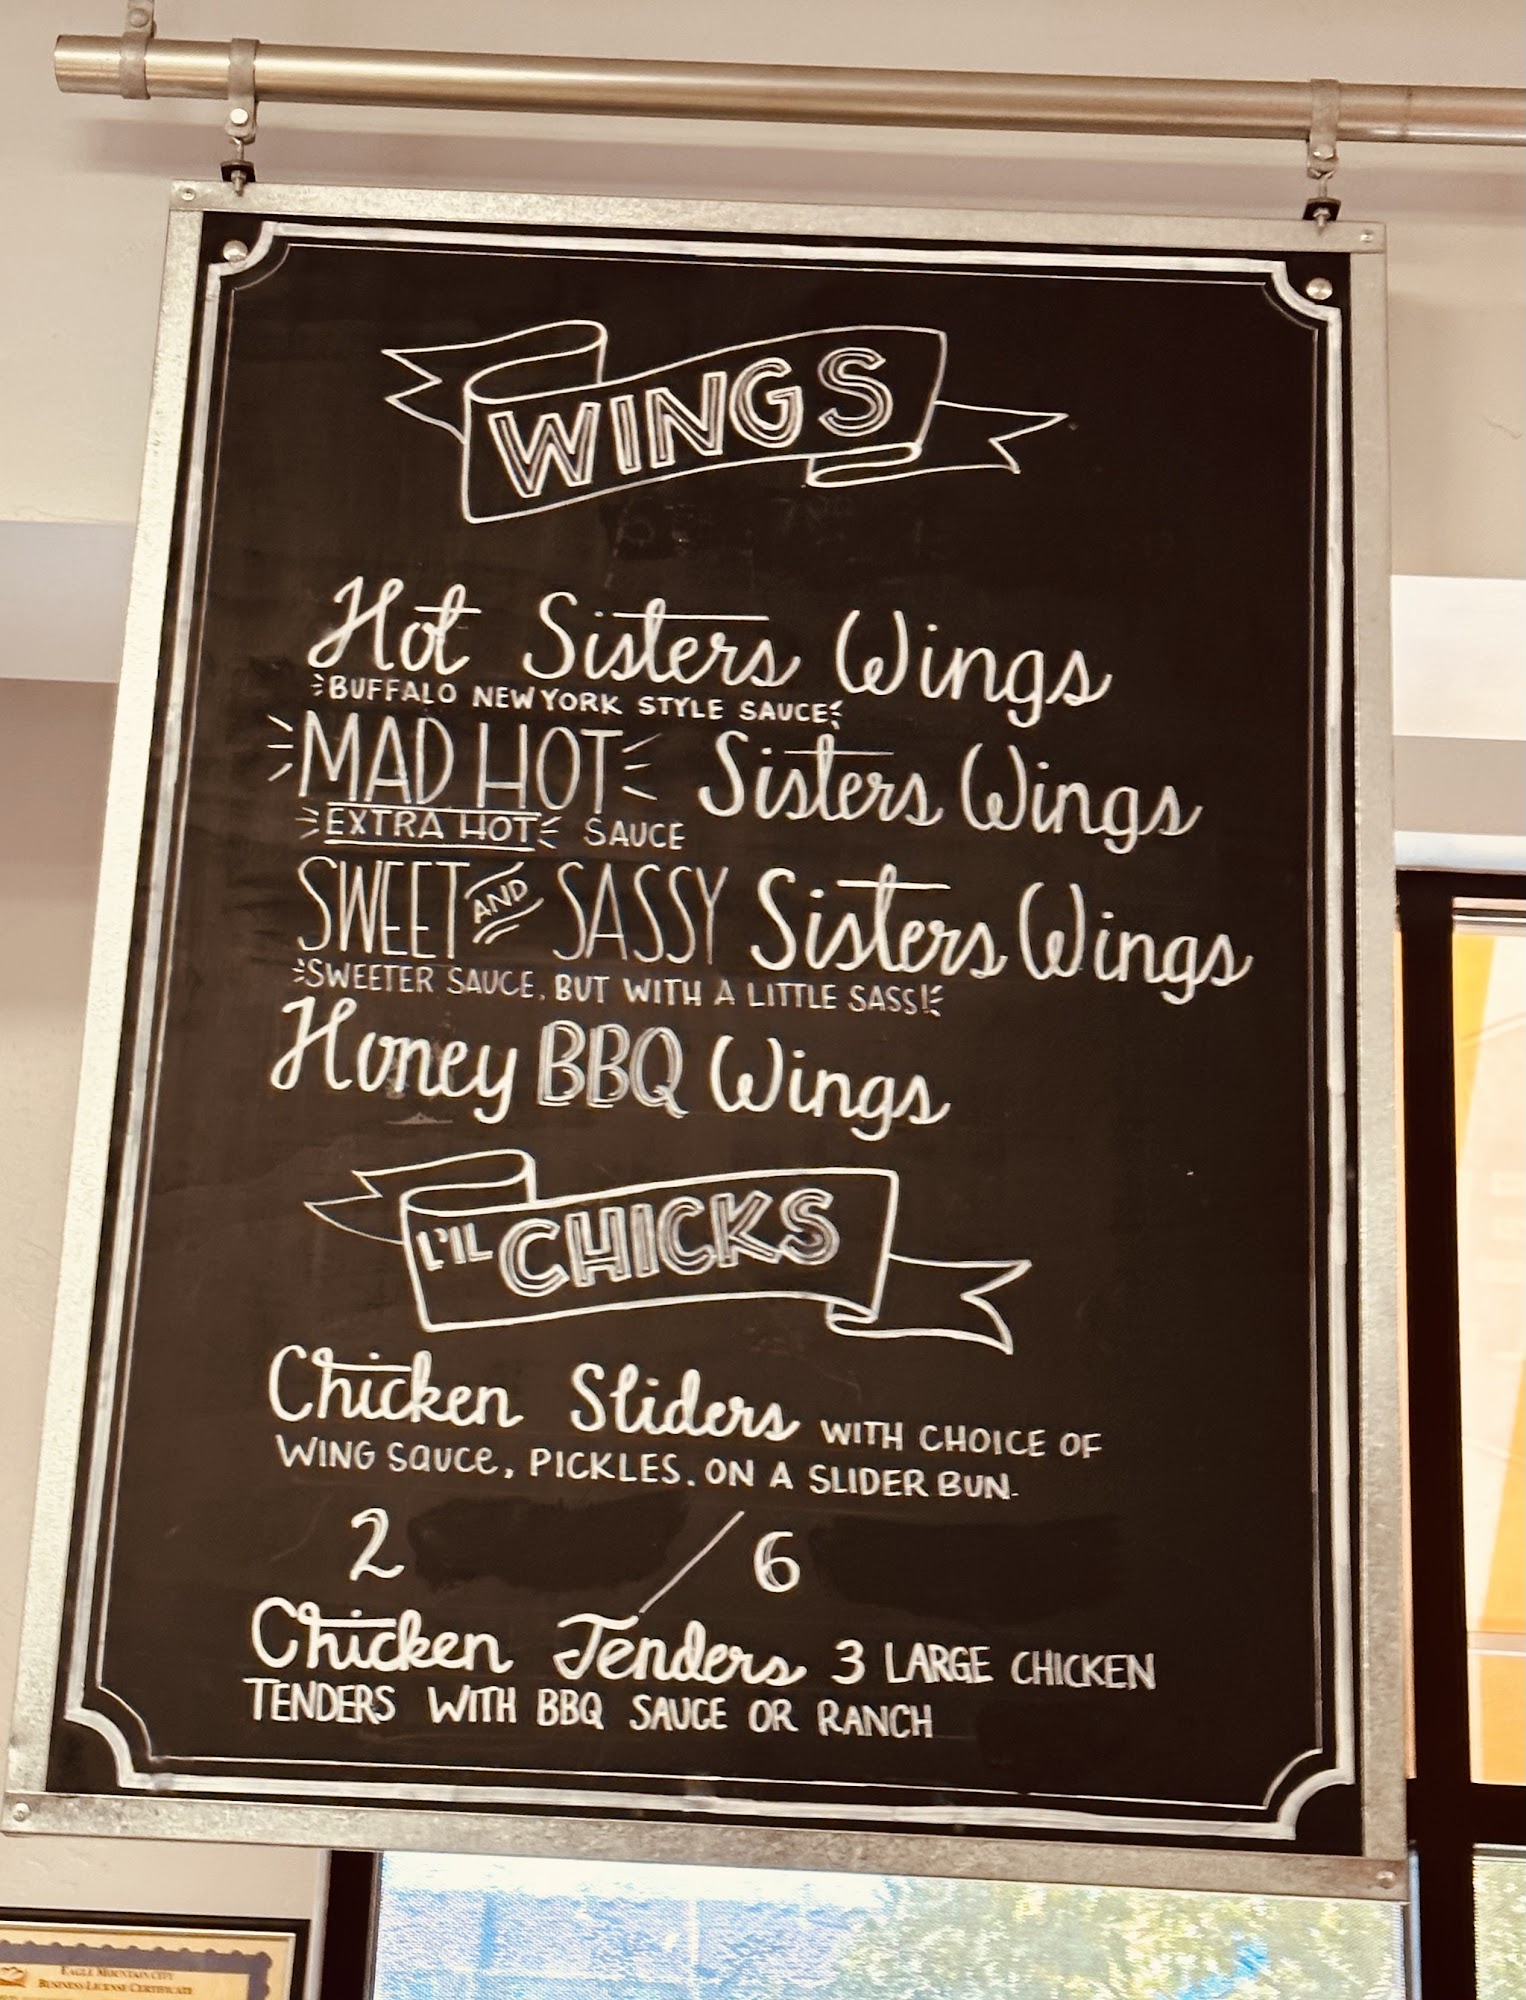 WINGS
Hot Sisters Wings
BUFFALO NEW YORK STYLE SAUCE
MAD HOT Sisters Wings
EXTRA HOT SAUCE
SWEET AND SASSY Sisters Wings
SWEETER SAUCE, BUT WITH A LITTLE SASS!
Honey BBQ Wings
L'IL CHICKS
Chicken Sliders WITH CHOICE OF
WING SAUCE, PICKLES. ON A SLIDER BUN.
2 / 6
Chicken Tenders 3 LARGE CHICKEN
TENDERS WITH BBQ SAUCE OR RANCH
EAGLE MOUNTAIN CITY
BUSINESS LICENSE CERTIFICATE